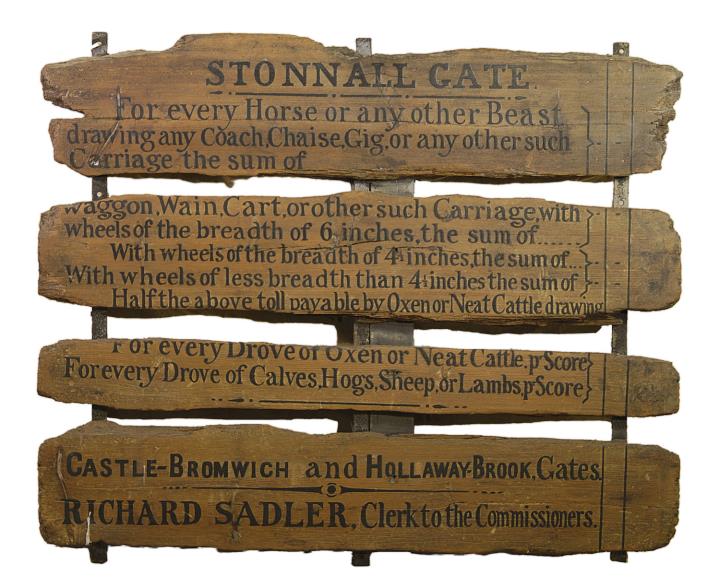 STONNALL GATE.
For every Horse or any other Beast
drawing any Coach, Chaise, Gig, or any other such
Carriage the sum of
Waggon, Wain, Cart, or other such Carriage, with
wheels of the breadth of 6 inches, the sum of......
With wheels of the breadth of 4½ inches, the sum of...
With wheels of less breadth than 4½ inches the sum of
Half the above toll payable by Oxen or Neat Cattle drawing
For every Drove of Oxen or Neat Cattle, pr Score
For every Drove of Calves, Hogs, Sheep, or Lambs, pr Score
CASTLE-BROMWICH and HOLLAWAY-BROOK, Gates.
RICHARD SADLER, Clerk to the Commissioners.